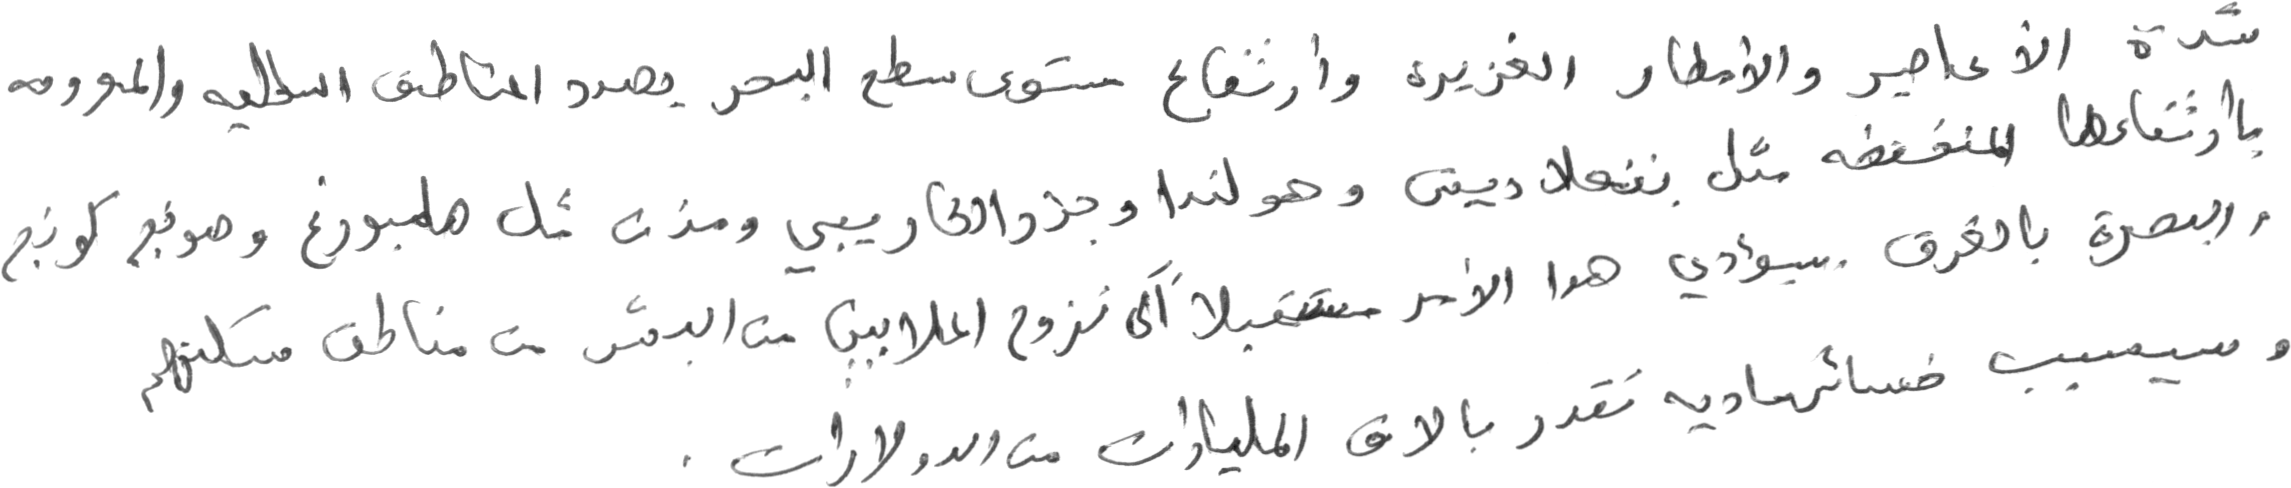 شدة الأعاصير والأمطار الغزيرة وأرتفاع مستوى سطح البحر يهدد المناطق الساحليه والمعروفه
بأرتفاعها المنخفضه مثل بنغلاديش وهولندا وجزر الكاريبي ومدن مثل هامبورغ وهونج كونج
والبصرة بالغرق. سيؤدي هذا الأمر مستقبلاً ألى نزوح الملايين من البشر من مناطق سكنهم
وسيسبب خسائر ماديه تقدر بالاف المليارات من الدولارات .